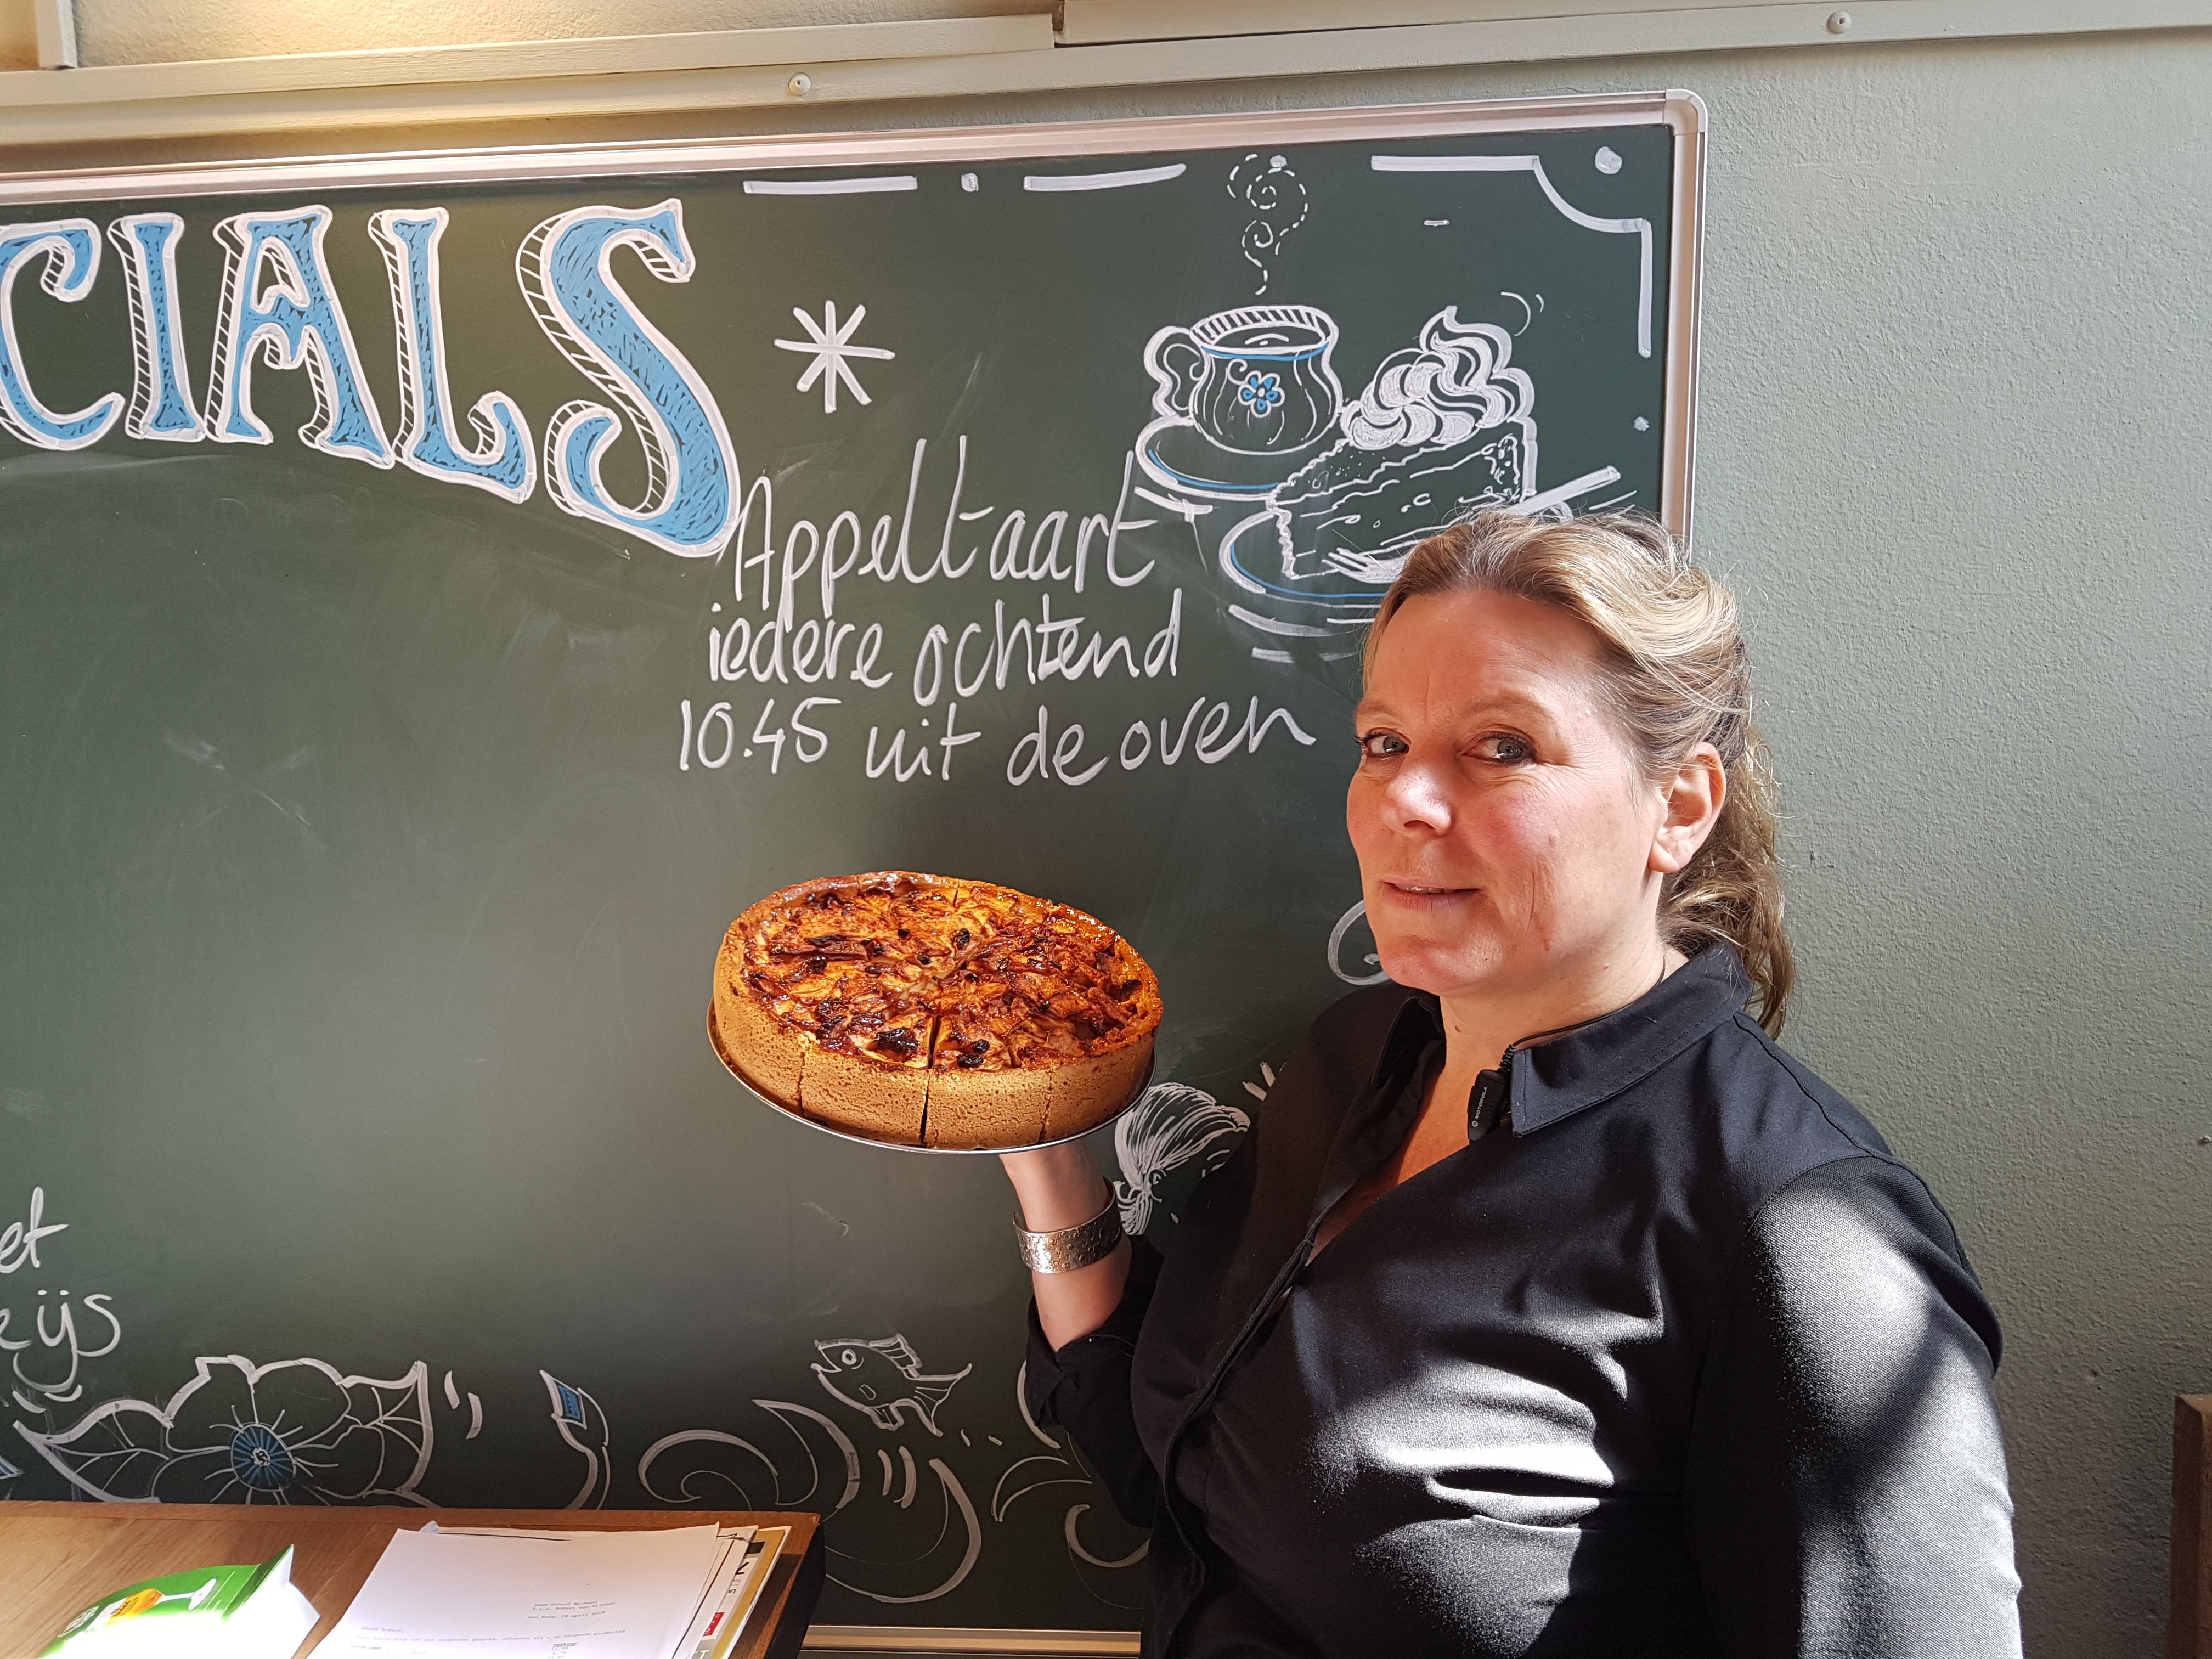 CIALS
Appeltaart
iedere ochtend
10.45 uit de oven
et
eijs
MOTOROLA